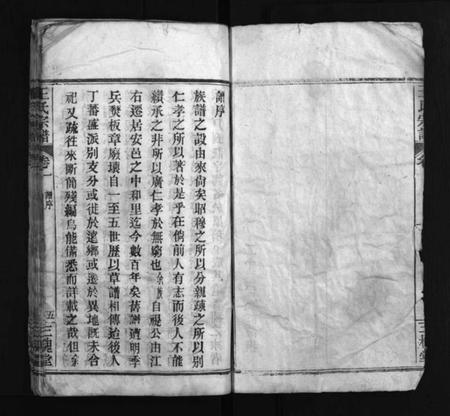 譜序
族譜之設由來尙矣昭穆之所以分親踈之所以別
仁孝之所以著於是乎在倘前人有志而後人不能
續承之非所以廣仁孝於無窮也余族自禔公由江
右遷居安邑之中和里迄今數百年矣舊譜遭明季
兵燹板章廢壞自一至五世歷以草譜相傳迨後人
丁蕃盛派別支分或徙於遠鄉或遷於異地旣未合
祀又疏往來斷簡殘編烏能備悉而詳載之哉但余
王氏宗譜 卷一 譜序 五 三槐堂